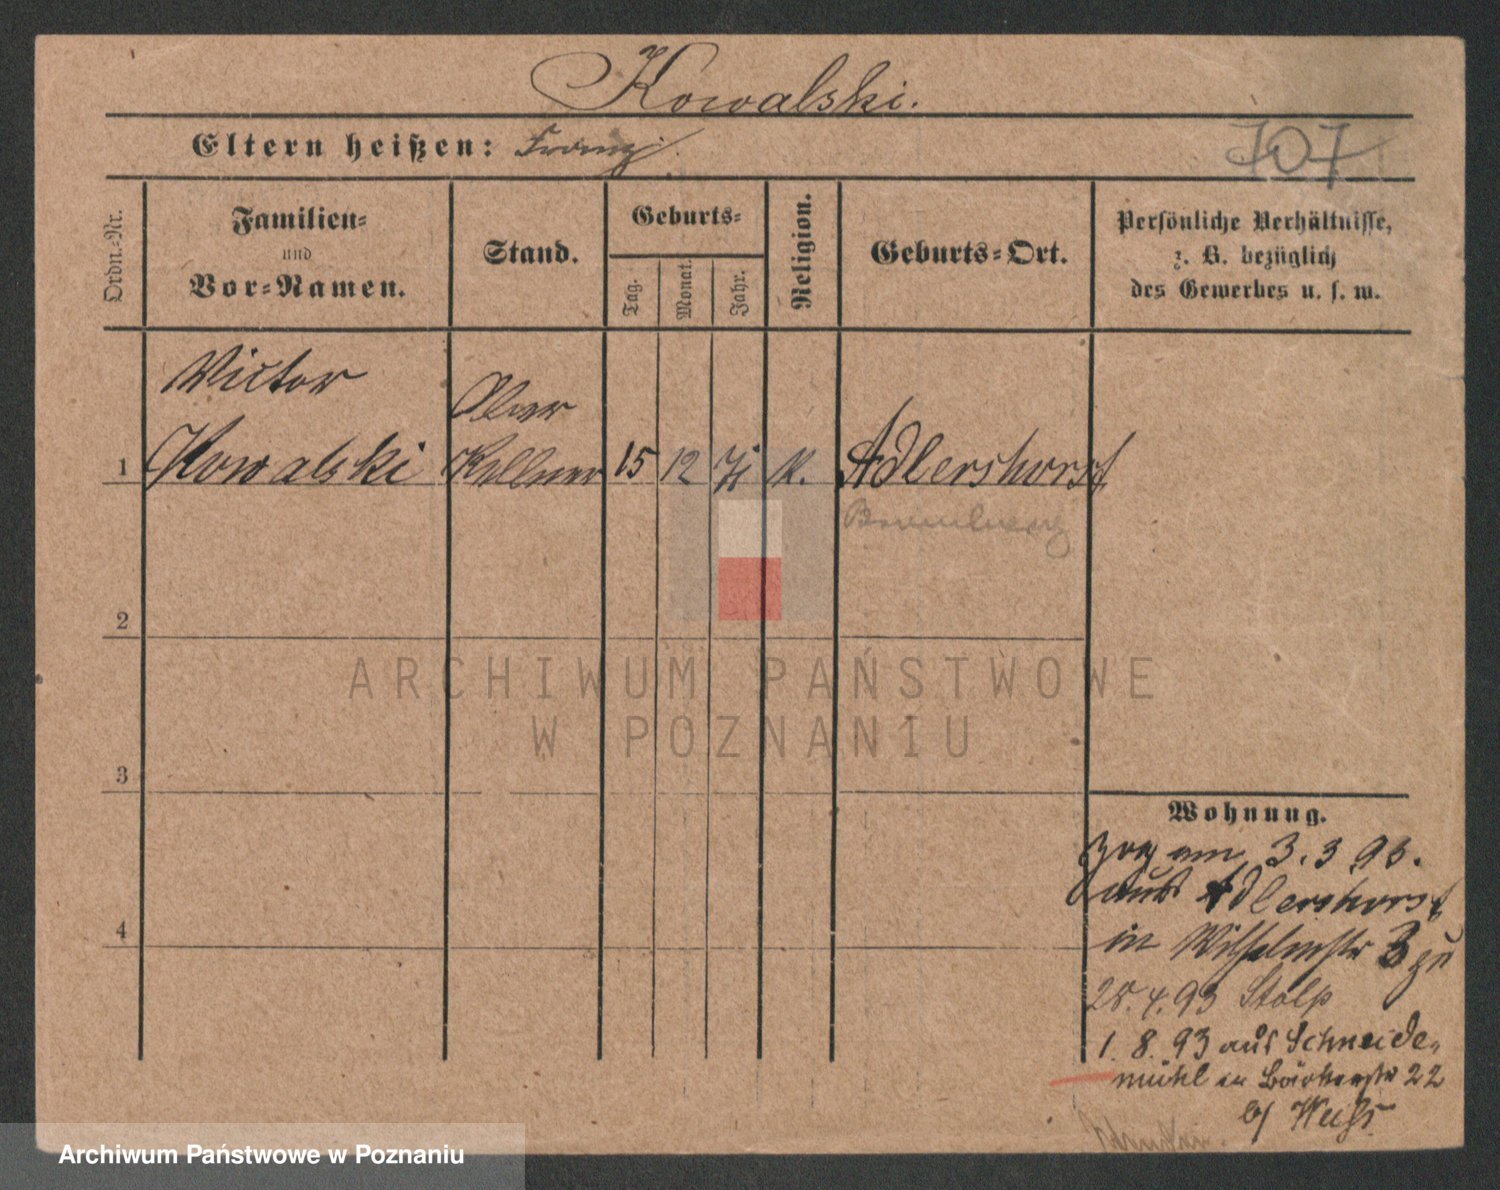 Kowalski.
Eltern heißen: Franz
707
Ordn.-Nr.
Familien-
und
Vor-Namen.
Stand.
Geburts-
Tag.
Monat.
Jahr.
Religion.
Geburts-Ort.
Persönliche Verhältnisse,
z. B. bezüglich
des Gewerbes u. s. w.
Victor
Ober
1 Kowalski Kellner 15 12 71 K. Adlershorst
Bromberg
2
ARCHIWUM PAŃSTWOWE
W POZNANIU
3
Wohnung.
Zog am 3.3 93.
aus Adlershorst
4
in Wilhelmstr 3 zu
28.4.93 Stolp
1. 8. 93 aus Schneide-
mühl in Bäckerstr 22
b/ Weiss
Archiwum Państwowe w Poznaniu